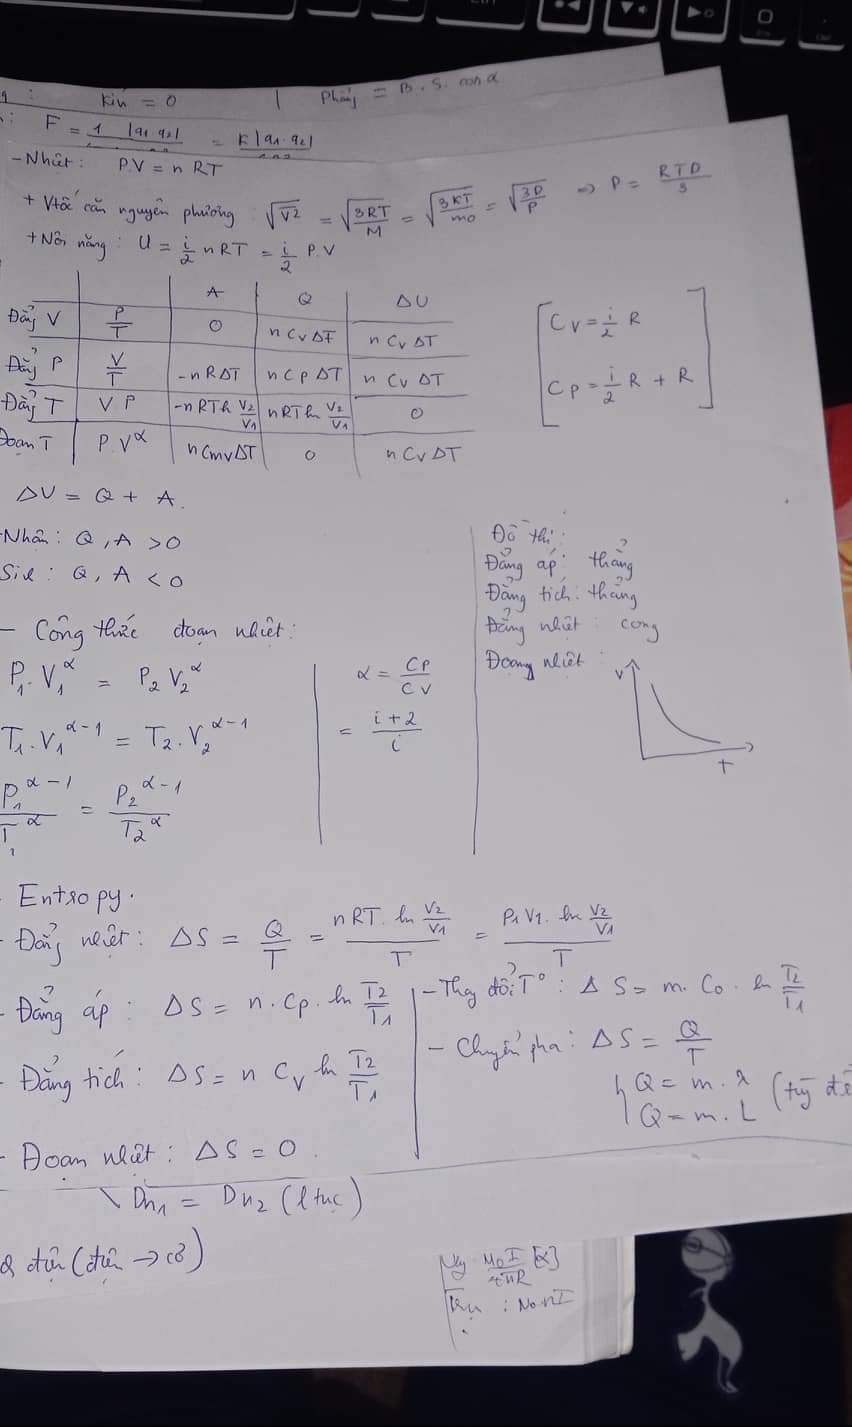 Kín = 0 | Phẳng = B.S. cos α
F = 1 |q1 q2| = K|q1.q2|
- Nhiệt: P.V = n RT
+ Vtốc căn nguyên phương: √V² = √3RT/M = √3KT/mo = √3P/P ⇒ P =
+ Nội năng: U = i/2 nRT = i/2 P.V
A Q ΔU
Đẳng V P/T 0 n Cv ΔT n Cv ΔT
Đẳng P V/T -nRΔT n CP ΔT n Cv ΔT
Đẳng T V P -nRTln V2/V1 nRTln V2/V1 0
Đoạn T P.V^α n Cmv ΔT 0 n Cv ΔT
[Cv = i/2 R
Cp = i/2 R + R]
ΔU = Q + A.
- Nhân: Q, A > 0
Sie: Q, A < 0
- Công thức đoạn nhiệt:
P1.V1^α = P2 V2^α
T1.V1^α-1 = T2.V2^α-1
P1^α-1/T1^α = P2^α-1/T2^α
α = CP/CV
= i+2/i
Đồ thị:
Đẳng áp: thẳng
Đẳng tích: thẳng
Đẳng nhiệt: cong
Đoạng nhiệt:
V
T
Entropy.
- Đẳng nhiệt: ΔS = Q/T = nRT. ln V2/V1 / T = P1 V1. ln V2/V1 / T
- Đẳng áp: ΔS = n.Cp.ln T2/T1
- Đẳng tích: ΔS = n Cv ln T2/T1
- Đoạn nhiệt: ΔS = 0.
- Thay đổi T°: ΔS = m.Co.ln T2/T1
- Chuyển pha: ΔS = Q/T
Q = m.λ (tuỳ đề
Q = m.L
Dn1 = Dn2 (ltục)
điện (điện → cơ)
MoI/4πR [α]
: NonI